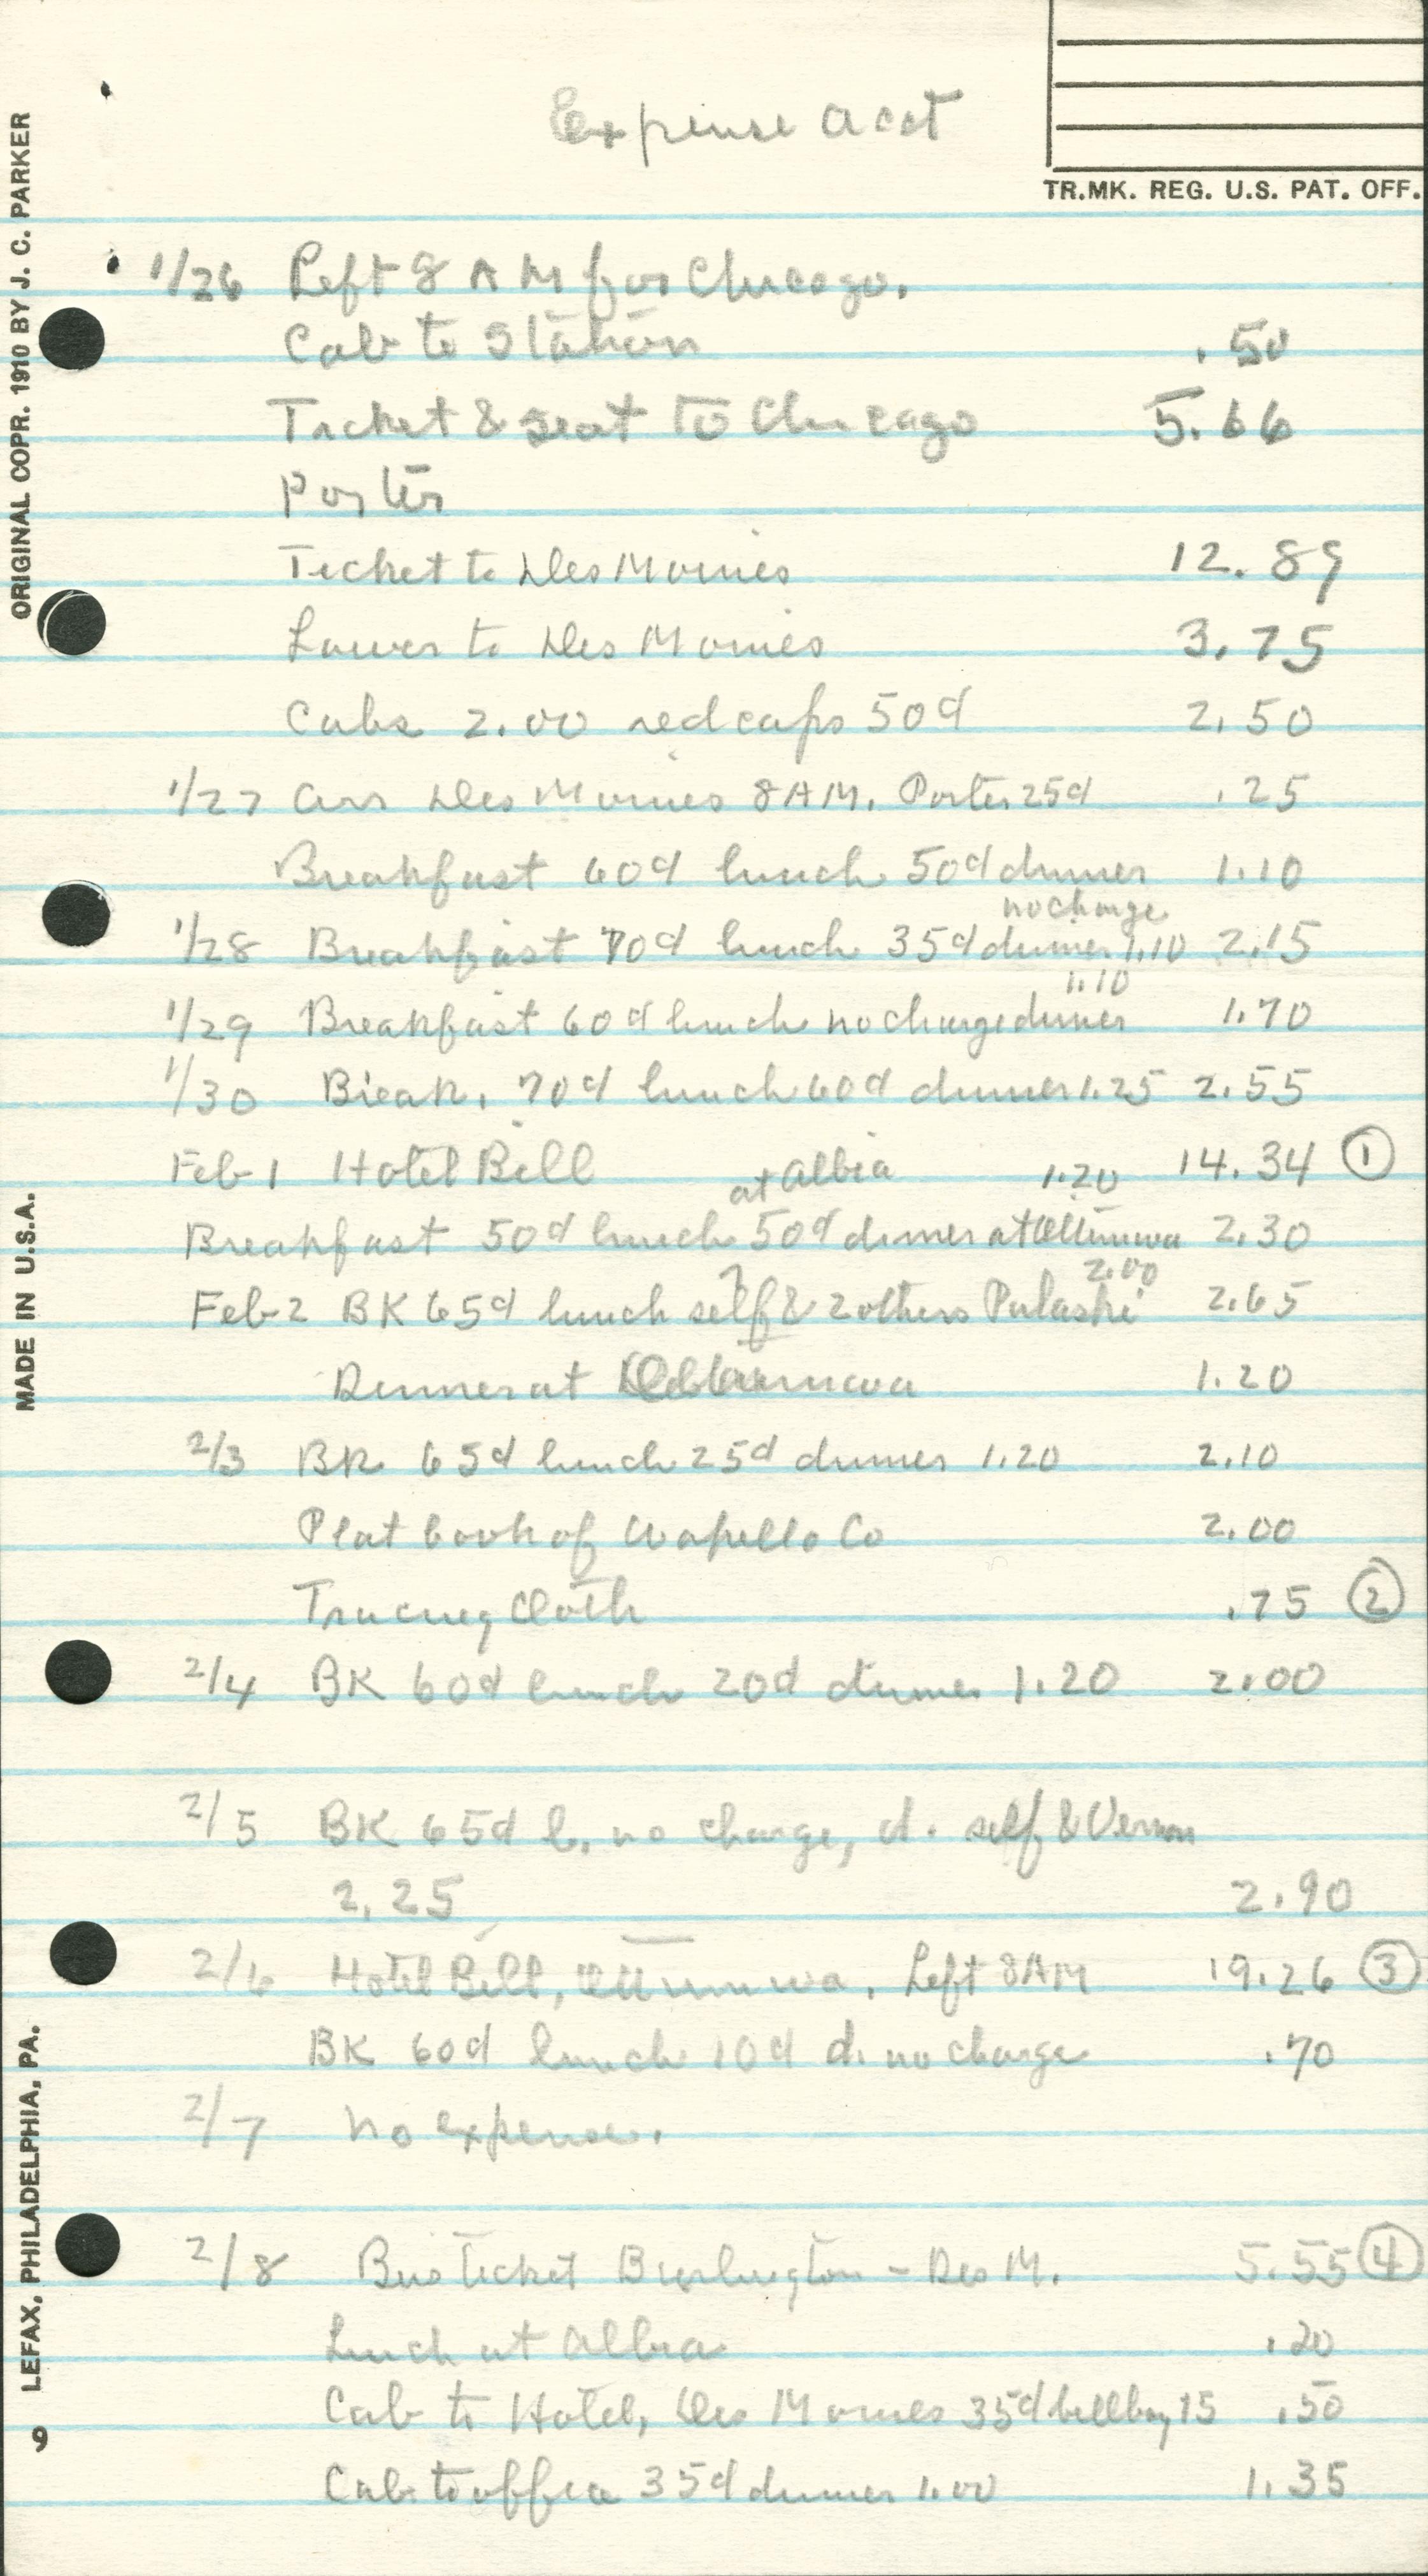 Expense acct
TR.MK. REG. U.S. PAT. OFF.
ORIGINAL COPR. 1910 BY J. C. PARKER
MADE IN U.S.A.
LEFAX, PHILADELPHIA, PA.
6
1/26 Left 8 AM for Chicago.
Cab to Station .50
Ticket & seat to Chicago 5.66
Porter
Ticket to Des Moines 12.89
Lower to Des Moines 3.75
Cabs 2.00 redcaps 50¢ 2.50
1/27 Arr Des Moines 8 AM. Porter 25¢ .25
Breakfast 60¢ lunch 50¢ dinner 1.10
no charge
1/28 Breakfast 70¢ lunch 35¢ dinner 1.10 2.15
1.10
1/29 Breakfast 60¢ lunch no charge dinner 1.70
1/30 Break. 70¢ lunch 60¢ dinner 1.25 2.55
Feb 1 Hotel Bill 14.34 ①
at Albia 1.20
Breakfast 50¢ lunch 50¢ dinner at Ottumwa 2.30
2.00
Feb-2 BK 65¢ lunch self & 2 others Pulaski 2.65
Dinner at Ottumwa 1.20
2/3 BK 65¢ lunch 25¢ dinner 1.20 2.10
Plat book of Wapello Co 2.00
Tracing Cloth .75 ②
2/4 BK 60¢ lunch 20¢ dinner 1.20 2.00
2/5 BK 65¢ l. no charge, d. self & Vernon
2.25 2.90
2/6 Hotel Bill, Ottumwa. Left 8AM 19.26 ③
BK 60¢ lunch 10¢ d. no charge .70
2/7 no expense.
2/8 Bus ticket Burlington - Des M. 5.55 ④
Lunch at Albia .20
Cab to Hotel, Des Moines 35¢ bellboy 15 .50
Cab to office 35¢ dinner 1.00 1.35